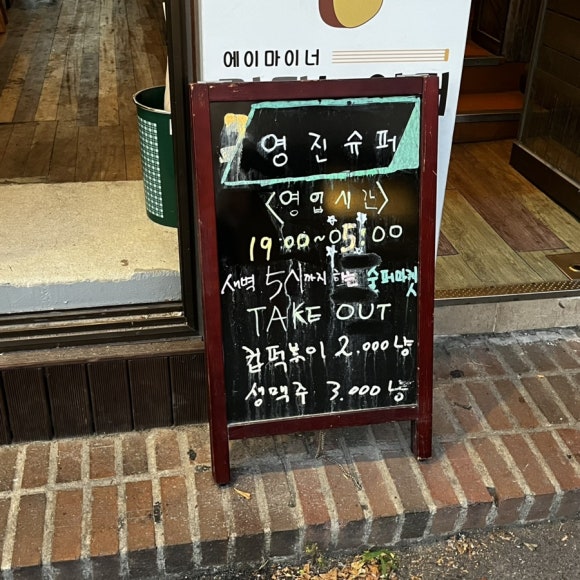 에이마이너
영진슈퍼
<영업시간>
19:00~05:00
새벽 5시까지 하는 술퍼마켓
TAKE OUT
컵떡볶이 2.000냥
성맥주 3.000냥